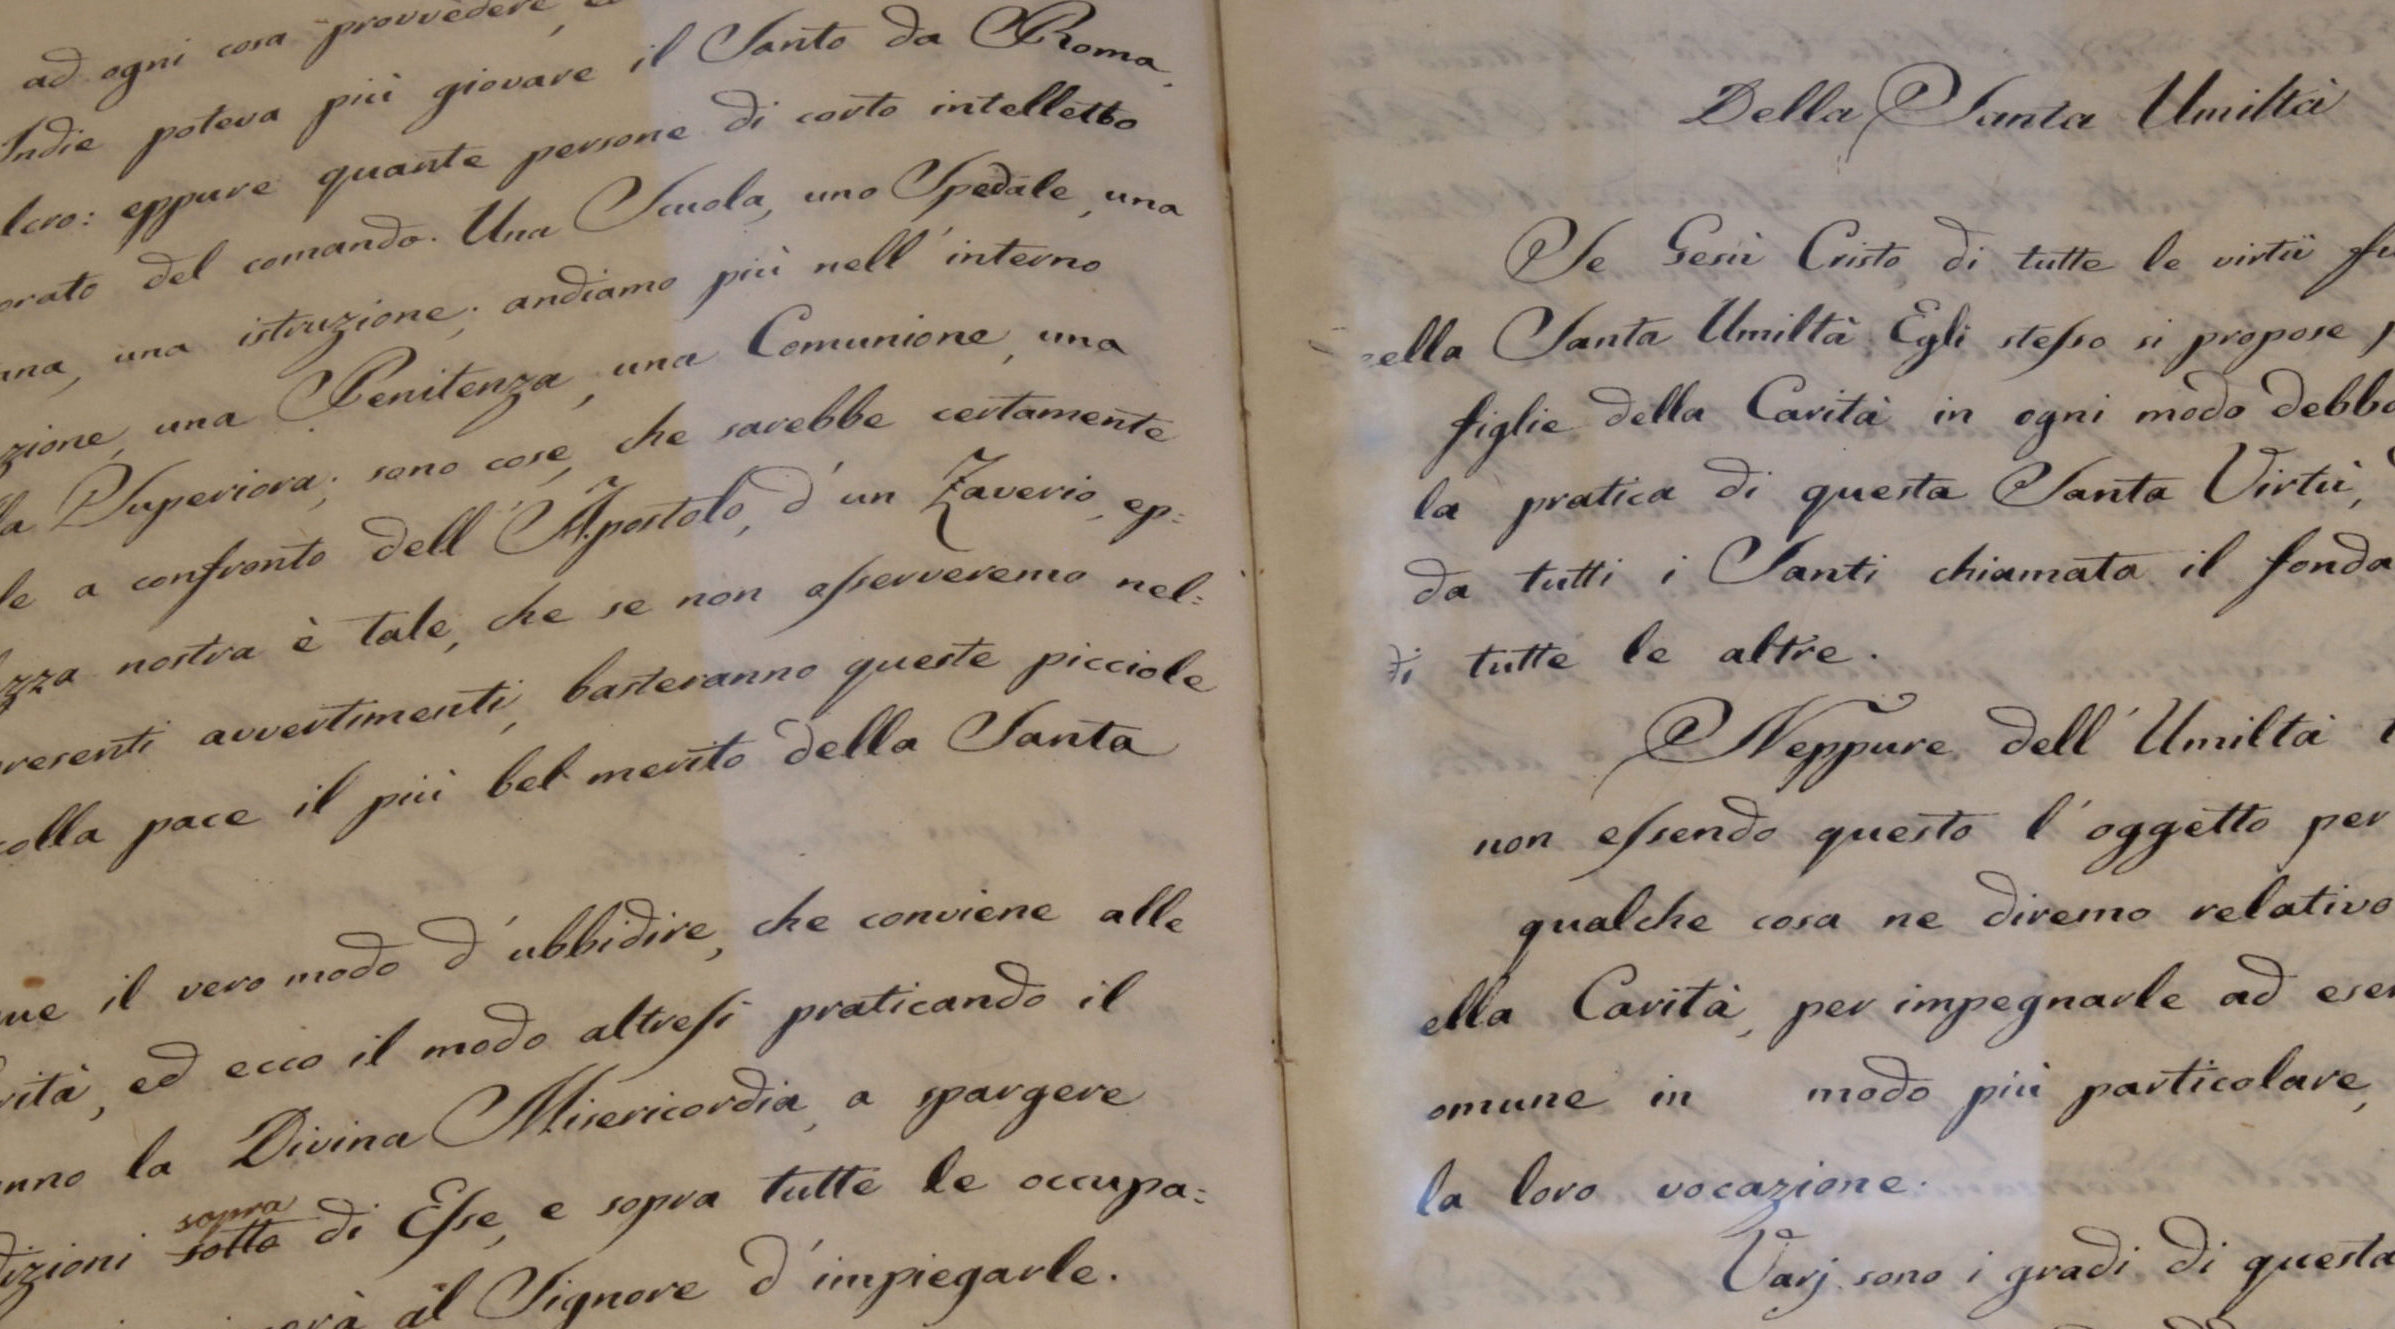 ad ogni cosa provvedere,
Indie poteva più giovare il Santo da Roma,
lero: eppure quante persone di corto intelletto
orato del comando. Una Scuola, uno Spedale, una
una, una istruzione; andiamo più nell'interno
zione, una Penitenza, una Comunione, una
la Superiora; sono cose, che sarebbe certamente
le a confronto dell'Apostolo, d'un Zaverio, ep:
zza nostra è tale, che se non oſserveremo nel:
resenti avvertimenti, basteranno queste picciole
colla pace il più bel merito della Santa
me il vero modo d'ubbidire, che conviene alle
rità, ed ecco il modo altreſi praticando il
nno la Divina Misericordia, a spargere
sopra
dizioni sotto di Eſse, e sopra tutte le occupa:
erà al Signore d'impiegarle.
Della Santa Umiltà
Se Gesù Cristo, di tutte le virtù fu
ella Santa Umiltà Egli steſso si propose p
figlie della Carità in ogni modo debbo
la pratica di questa Santa Virtù,
da tutti i Santi chiamata il fonda
di tutte le altre.
Neppure dell'Umiltà t
non eſsendo questo l'oggetto per
qualche cosa ne diremo relativo
ella Carità, per impegnarle ad eser
omune in modo più particolare,
la loro vocazione.
Varj sono i gradi di questa